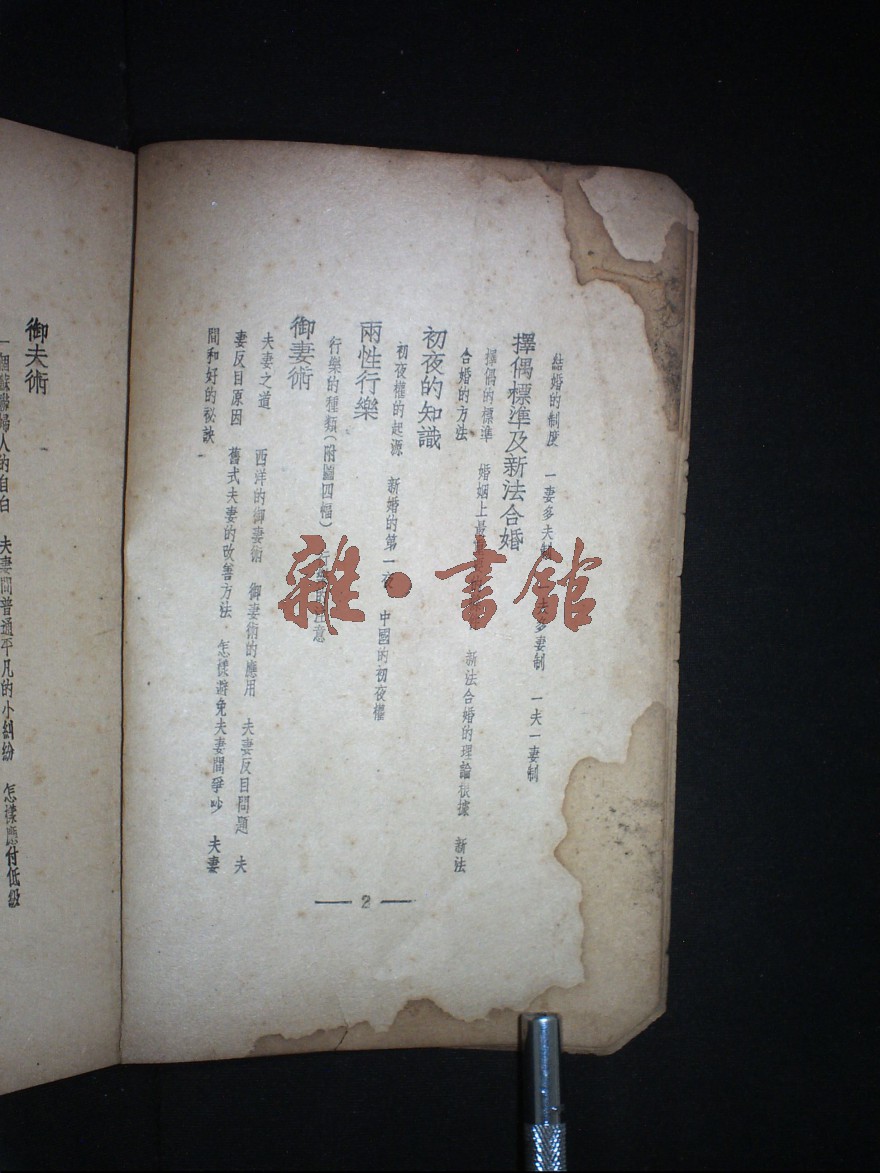 結婚的制度 一妻多夫制 夫多妻制 一夫一妻制
擇偶標準及新法合婚
擇偶的標準 婚姻上最 新法合婚的理論根據 新法
合婚的方法
初夜的知識
初夜權的起源 新婚的第一夜 中國的初夜權
兩性行樂
行樂的種類(附圖四幅) 行 注意
御妻術
夫妻之道 西洋的御妻術 御妻術的應用 夫妻反目問題 夫
妻反目原因 舊式夫妻的改善方法 怎樣避免夫妻間爭吵 夫妻
間和好的秘訣
2
御夫術
一個 婦人的自白 夫妻間普通平凡的小糾紛 怎樣應付低級
雜·書館